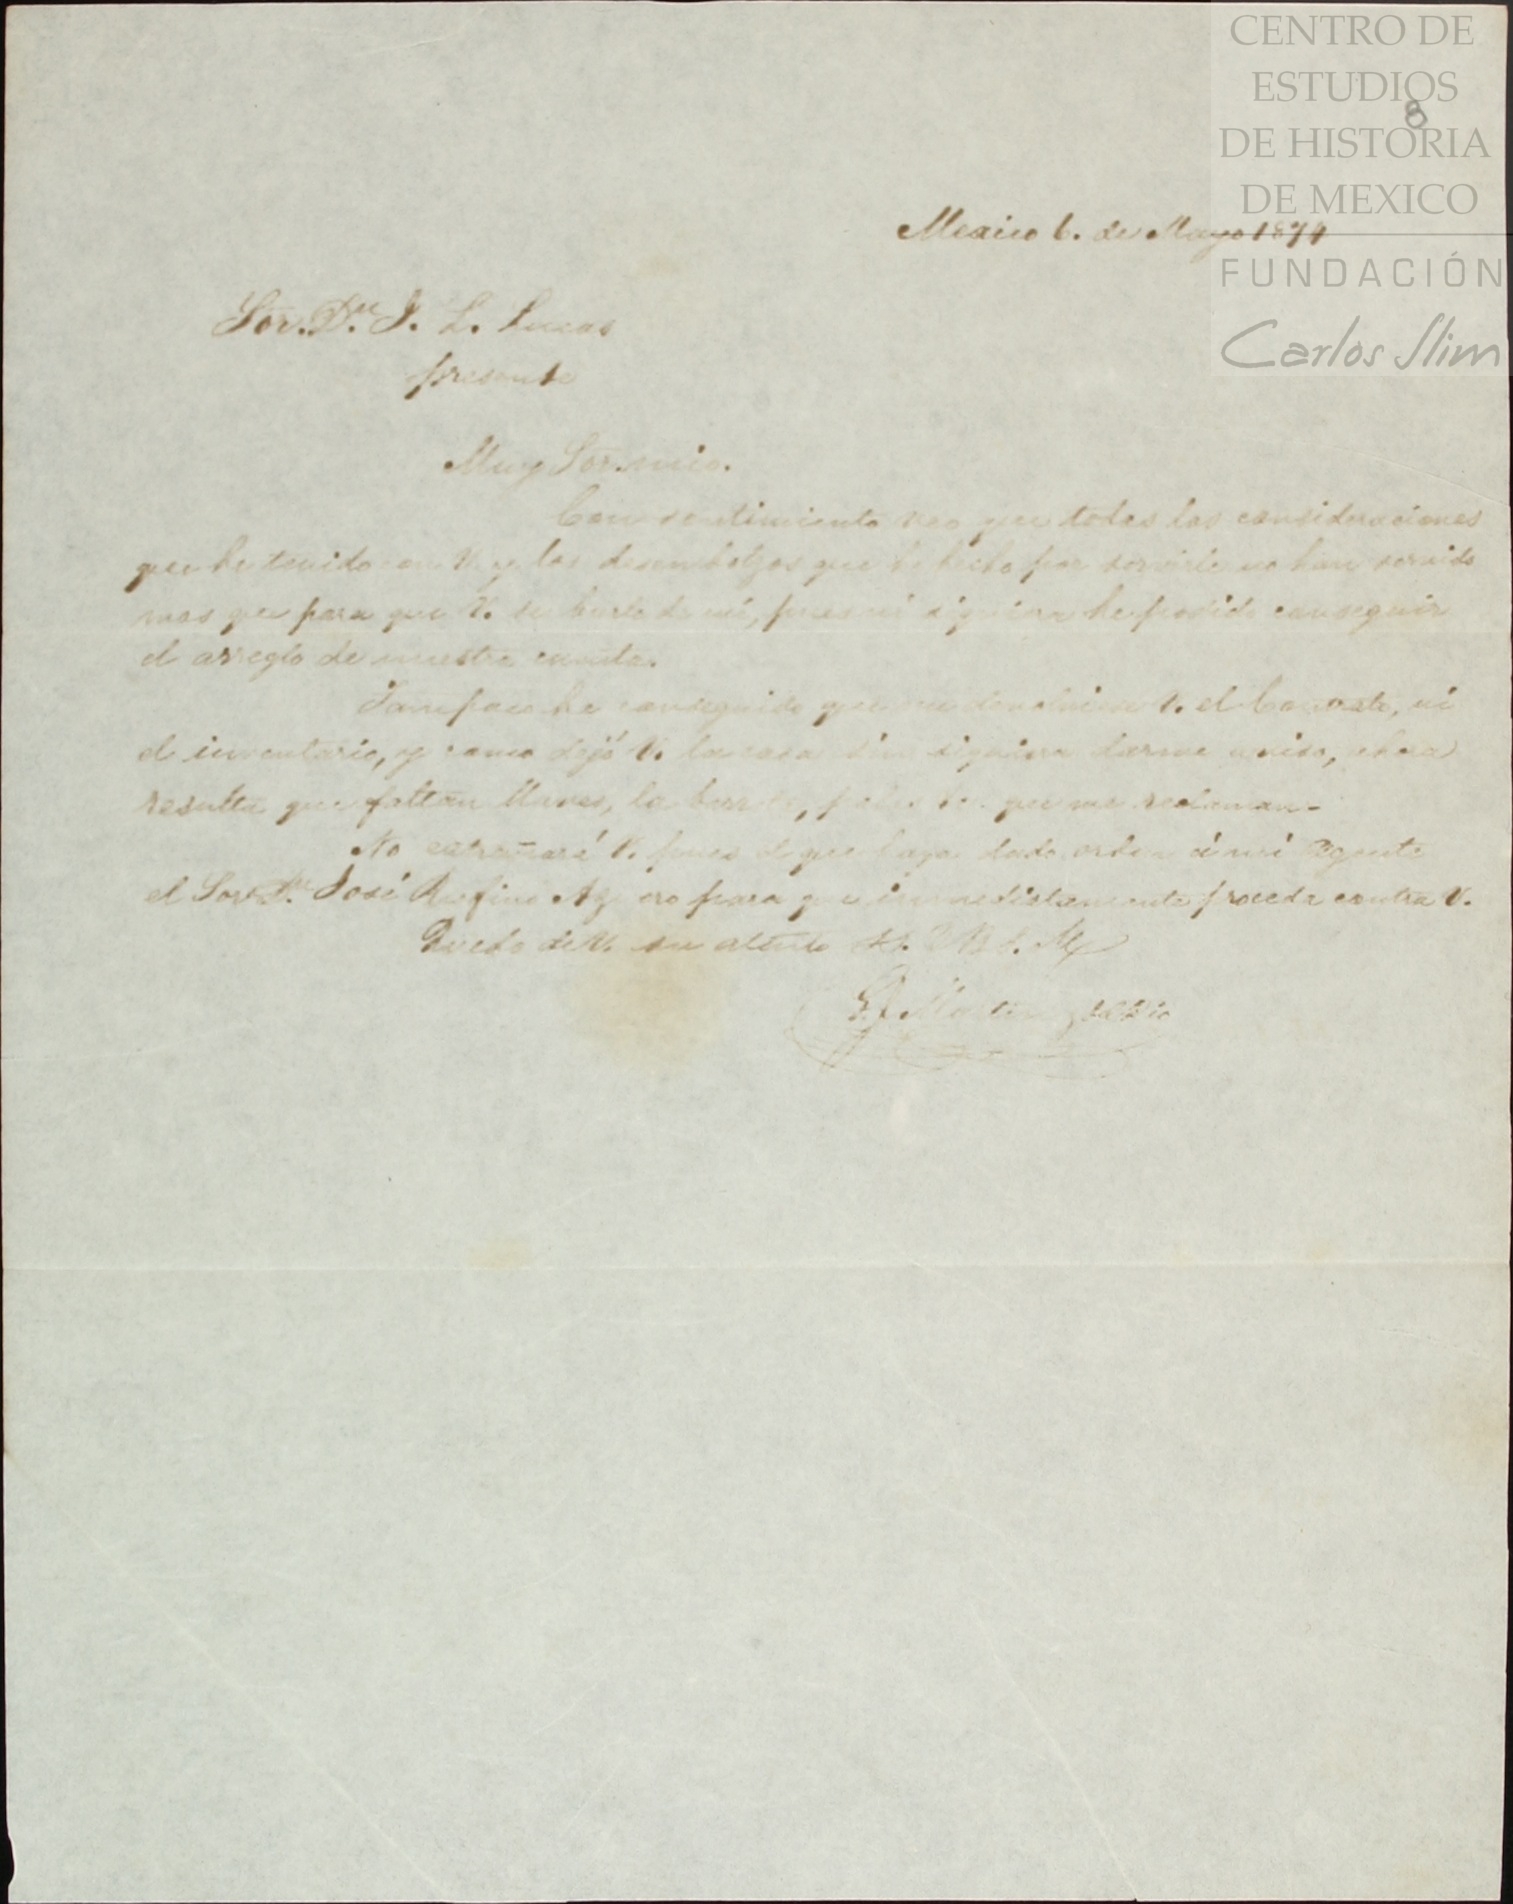 CENTRO DE
ESTUDIOS
DE HISTORIA
DE MEXICO
FUNDACIÓN
Carlos Slim
8
Mexico 6. de Mayo 1874
Sor. Dn. J. L. Lucas
presente
Muy Sor. mio.
Con sentimiento veo que todas las consideraciones
que he tenido con V. y los desembolzos que he hecho por servirle no han servido
mas que para que V. se burle de mi, pues ni siquiera he podido conseguir
el arreglo de nuestra cuenta.
Tampoco he conseguido que me devolviese V. el Contrato, ni
el inventario, y como dejó V. la casa sin siquiera darme aviso, ahora
resulta que faltan llaves, la que me reclaman.
No estrañará V. pues el que haya dado orden á mi agente
el Sor. Dn. José Rufino para que inmediatamente proceda contra V.
Quedo de V. su atento S. S. Q. B. S. M.
Martin